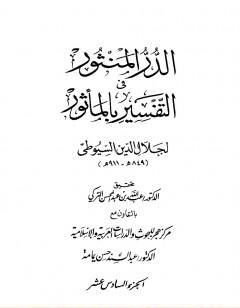 الدر المنثور
في
التفسير بالمأثور
لجلال الدين السيوطي
(٨٤٩ هـ - ٩١١ هـ)
تحقيق
الدكتور عبد الله بن عبد المحسن التركي
بالتعاون مع
مركز هجر للبحوث والدراسات العربية والإسلامية
الدكتور عبد السند حسن يمامة
الجزء السادس عشر